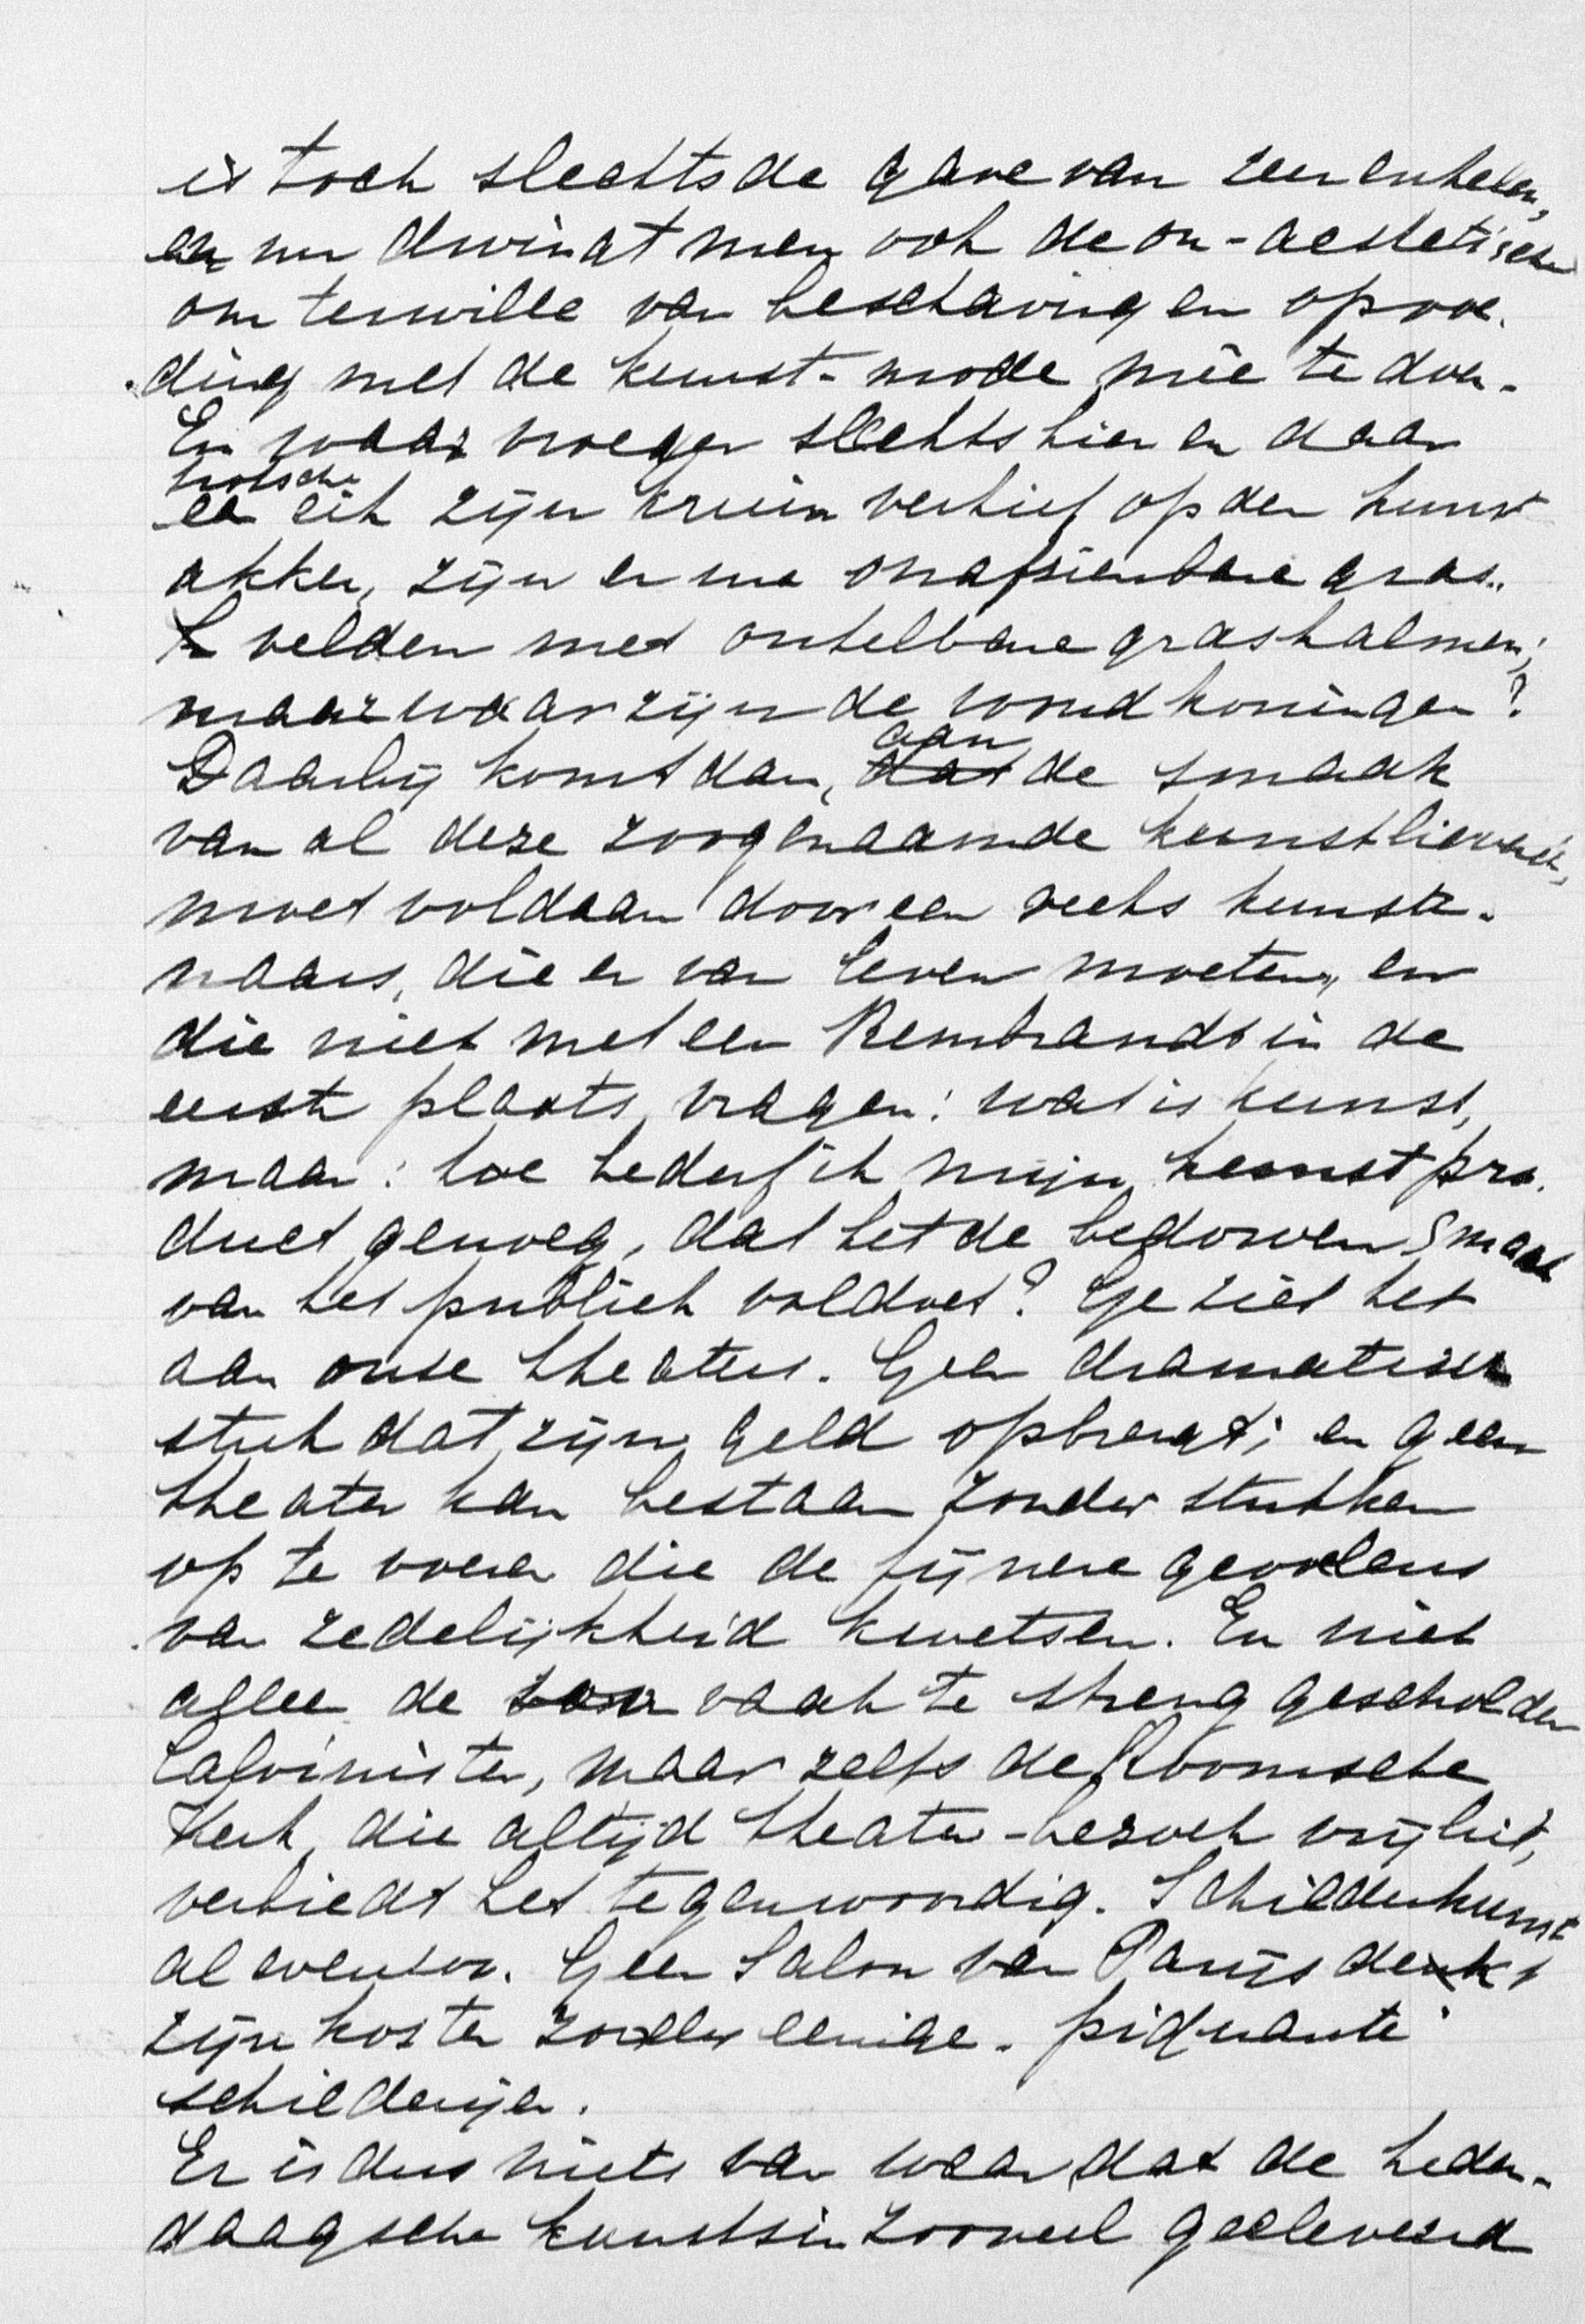 is toch slechts de gave van zeer enkelen,
en nu dwingt men ook de on-aesletische
om terwille van beschaving en opvoe-
ding met de kunst-mode meê te doen.
En waar vroeger slechts hier en daar
trotsche
een eik zijn kruin verhief op den kunst
akker, zijn er nu onafzienbare gras-
velden met ontelbare grashalmen;
maar waar zijn de woudkoningen?
aan
Daarbij komt dan, dat de smaak
van al deze zoogenaamde kunstlievend,
moet voldaan door een reeks kunste-
naars, die er van leven moeten, en
die niet met een Rembrandt in de
eerste plaats vragen: wat is kunst,
maar: hoe bederf ik mijn kunstpro-
duct genoeg, dat het de bedorven smaak
van het publiek voldoet? Ge ziet het
aan onze theaters. Geen dramatisch
stuk dat zijn geld opbrengt; en geen
theater kan bestaan zonder stukken
op te voeren die de fijnere gevoelens
van zedelijkheid kwetsen. En niet
alleen de vaak te streng gescholden
Calvinisten, maar zelfs de Roomsche
Kerk, die altijd theater-bezoek vrijliet,
verbiedt het tegenwoordig. Schilderkunst
al evenzoo. Geen Salon van Parijs denkt
zijn kosten zonder eenige piquante
schilderijen.
Er is dus niets van waar dat de heden-
daagsche kunstzin zooveel geëleveerd